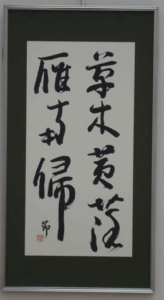 草木黄落
雁南帰